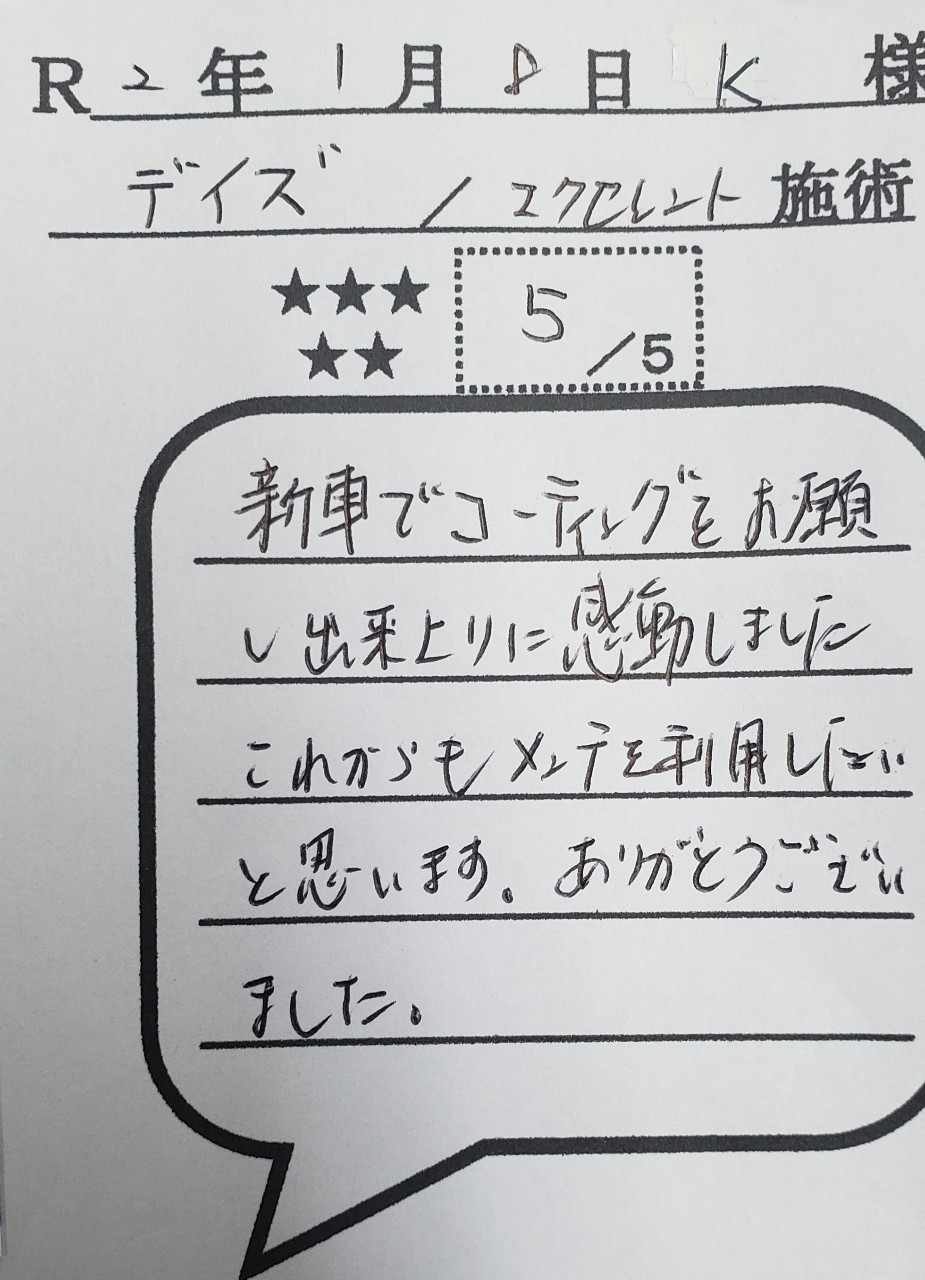 R2年1月8日 K 様
デイズ / エクセレント 施術
★★★ 5/5
★★
新車でコーティングをお願
し出来上りに感動しました
これからもメンテを利用したい
と思います。ありがとうござい
ました。